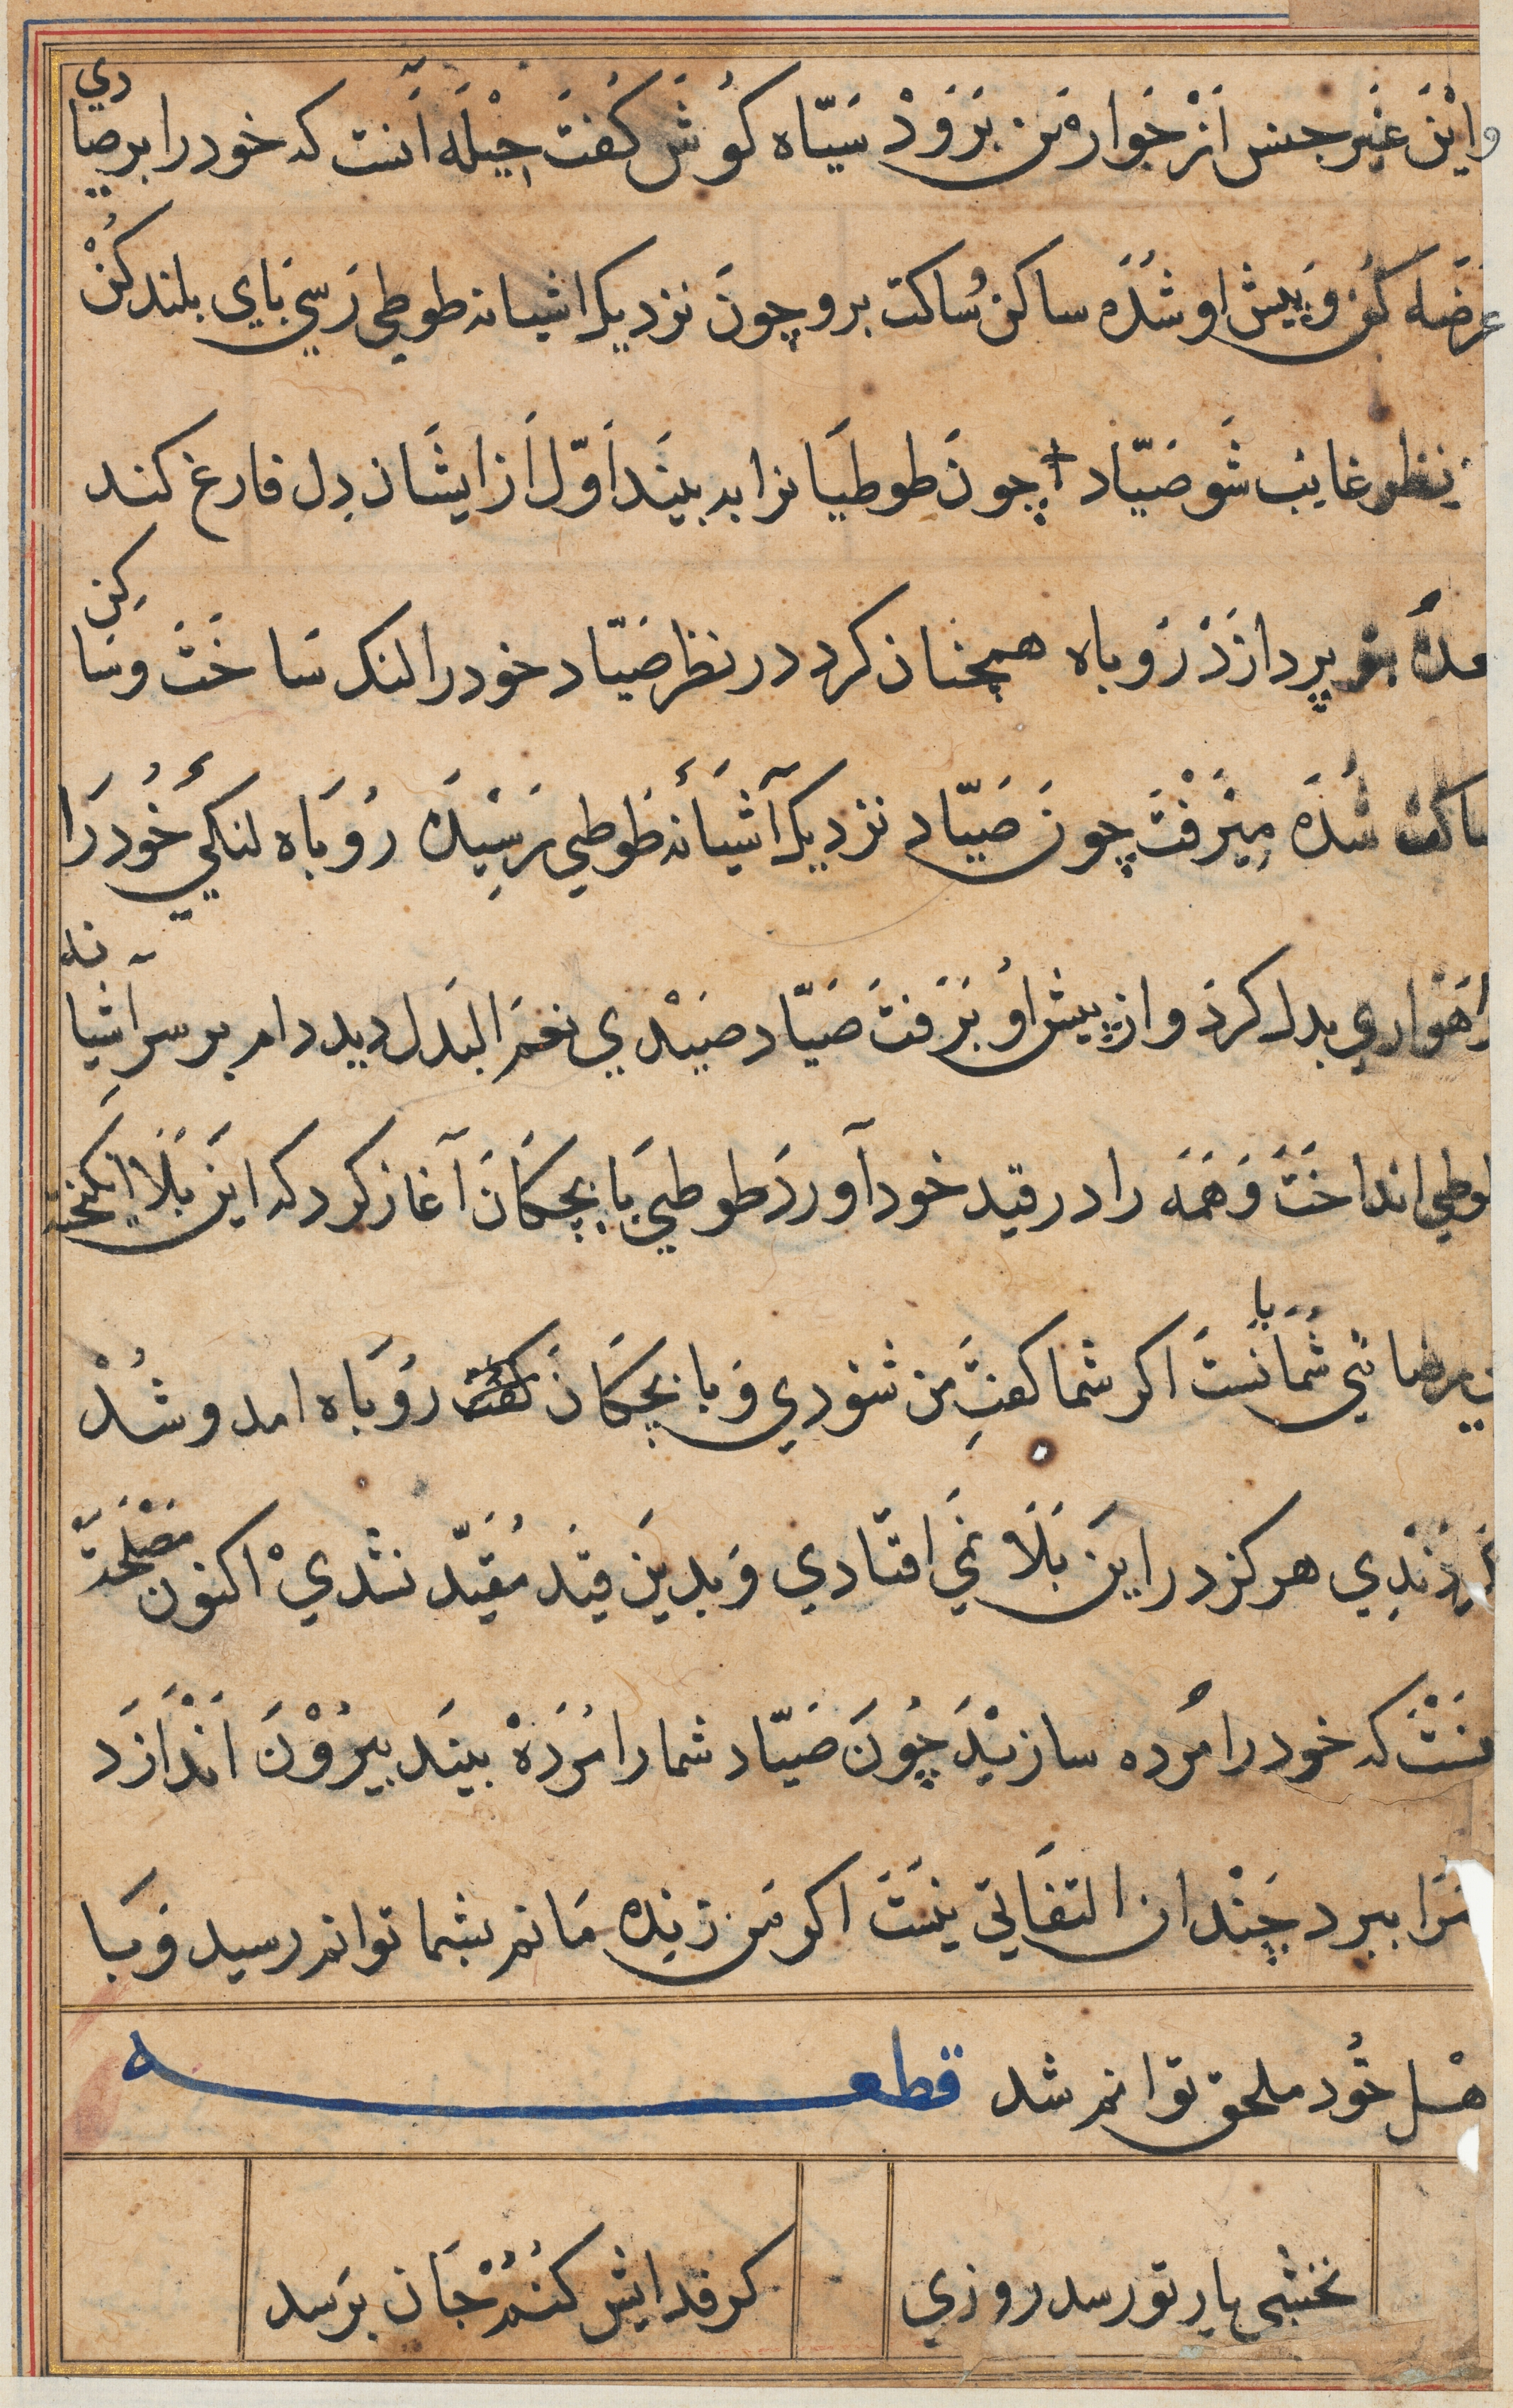 واین غیر جنس از جوار من برود سیاه کوش کفت حیله آنست که خود را بر صیادی
عرضه کن و پیش او شده ساکن و ساکت برو چون نزدیک اشیانه طوطی رسی بای بلند کن
نظر غایب شو صیاد چون طوطیانرا به بیند اول از ایشان دل فارغ کند
پردازد روباه همچنان کرد در نظر صیاد خود را لنک ساخت و ساکن
ساکت شده میرفت چون صیاد نزدیک آشیانه طوطی رسیده روباه لنکی خود را
راهواری بدل کرد و از پیش او برفت صیاد صیدی نعم البدل دید دام بر سر آشیانه
طوطی انداخت و همه را در قید خود آورد طوطی با بچکان آغاز کرد که این بلا انکیخته
شمایانست اکر شما کفت من شنودی و با بچکان روباه امد و شد
هرکز در این بلا نمی افتادی و بدین قید مقید نشدی اکنون مصلحت
که خود را مرده سازید چون صیاد شما را مرده بیند بیرون اندازد
مرا ببرد چندان التفاتی نیست اکر من زنده مانم بشما توانم رسید و با
هل خود ملحق توانم شد قطعه
نخشبی یار تو رسد روزی کر فدایش کنم جان برسد